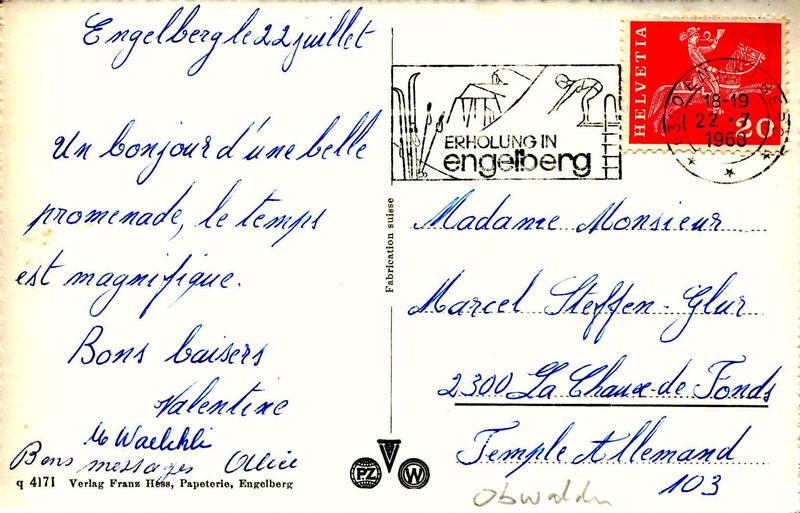 Engelberg le 22 juillet
Un bonjour d'une belle
promenade, le temps
est magnifique.
Bons baisers
Valentine
M Waelchli
Bons messages Alice
q 4171 Verlag Franz Hess, Papeterie, Engelberg
Fabrication suisse
ERHOLUNG IN
engelberg
HELVETIA
20
18-19
22.7
1968
Madame Monsieur
Marcel Steffen-Glur
2300 La Chaux-de-Fonds
Temple Allemand
103
PZ
W
Obwalden